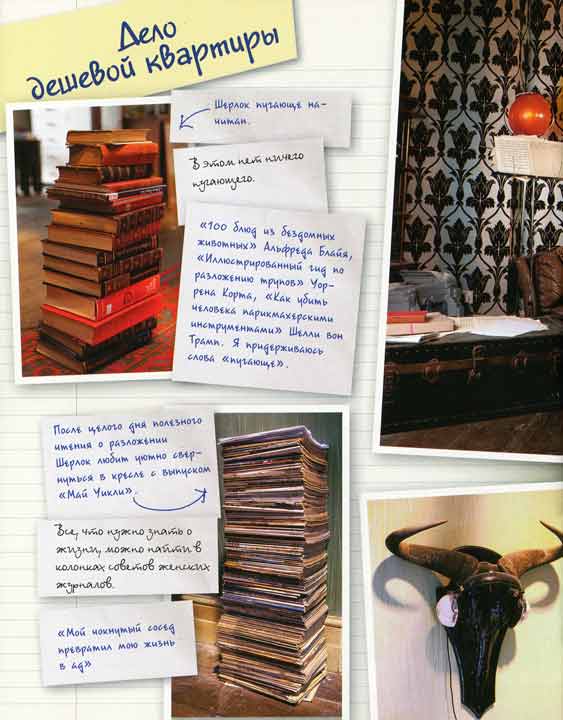 Дело
дешевой квартиры
Шерлок пугающе на-
читан.
В этом нет ничего
пугающего.
«100 блюд из бездомных
животных» Альфреда Блайя,
«Иллюстрированный гид по
разложению трупов» Уор-
рена Корта, «Как убить
человека парикмахерскими
инструментами» Шелли вон
Трамп. Я придерживаюсь
слова «пугающе».
После целого дня полезного
чтения о разложении
Шерлок любит уютно свер-
нуться в кресле с выпуском
«Май Уикли».
Все, что нужно знать о
жизни, можно найти в
колонках советов женских
журналов.
«Мой чокнутый сосед
превратил мою жизнь
в ад»